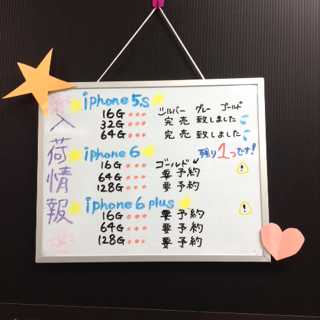 入荷情報
iphone 5s
16G ••• シルバー グレー ゴールド
32G ••• 完売致しました
64G ••• 完売致しました
iphone 6 残り1つです!
16G ••• ゴールド
64G ••• 要予約
128G ••• 要予約
iphone 6 plus
16G ••• 要予約
64G ••• 要予約
128G ••• 要予約